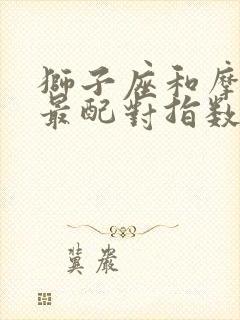 獅子座和摩
最配對指數
冀嚴